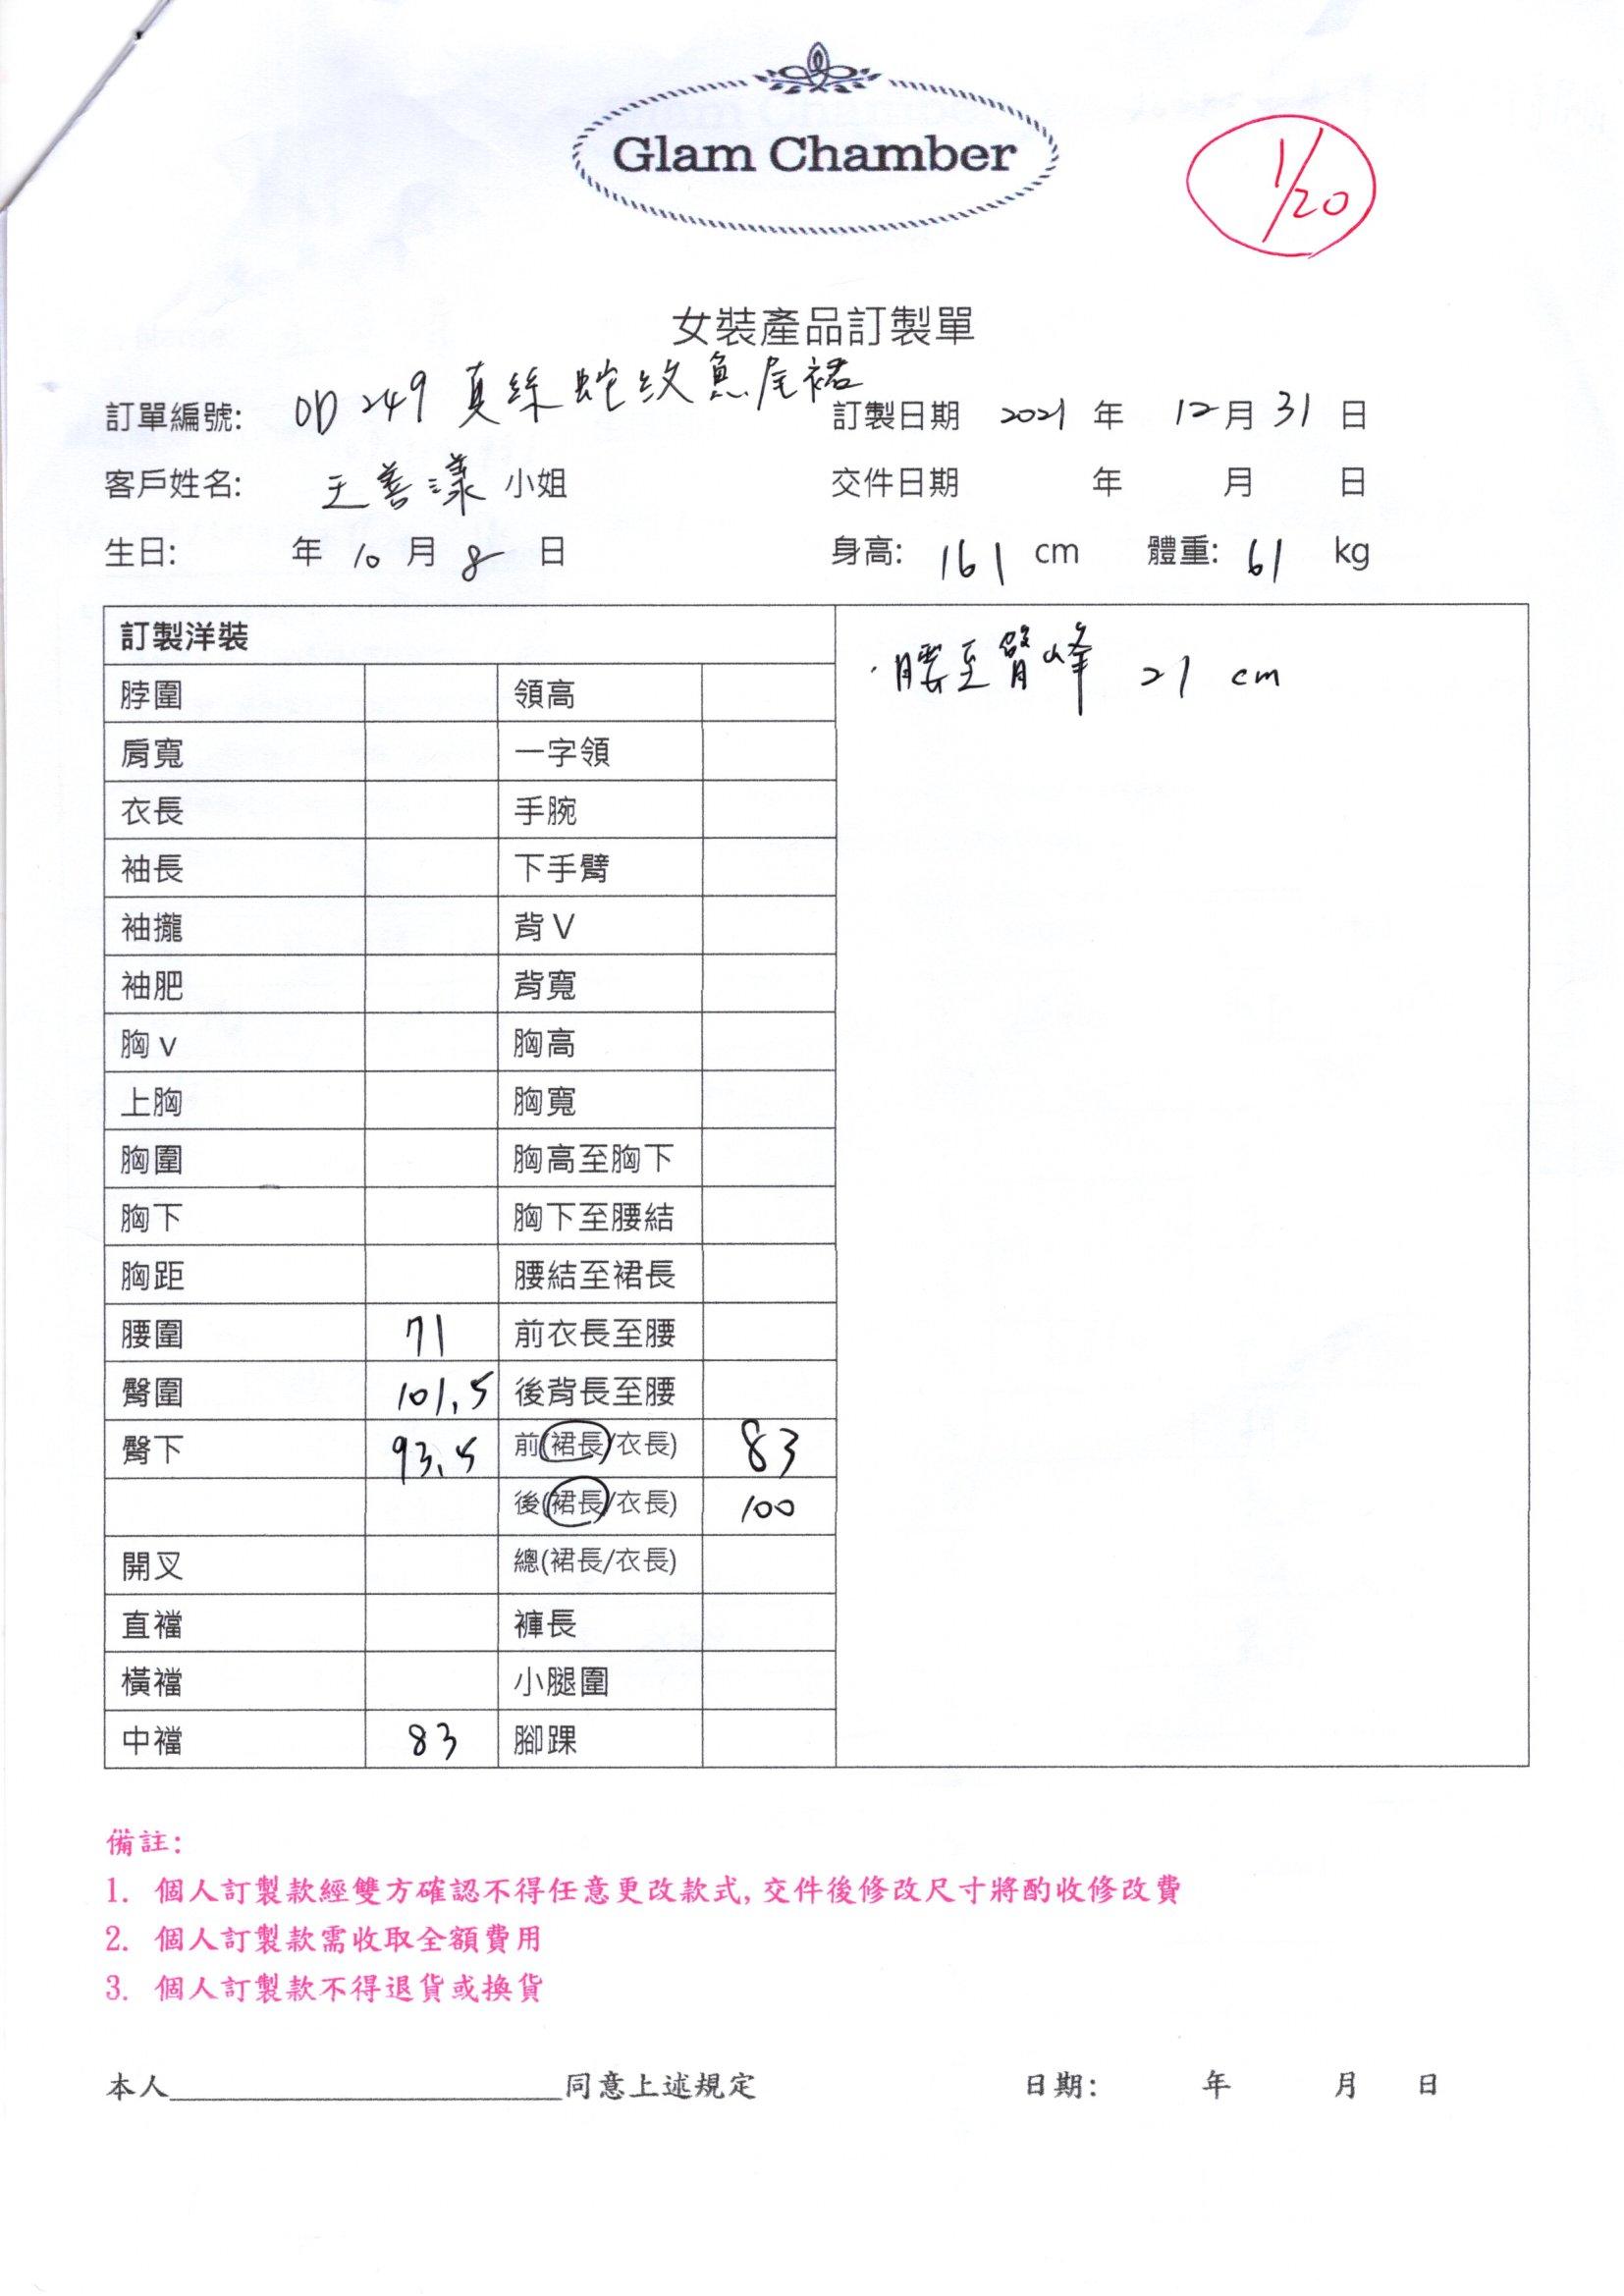 Glam Chamber
1/20
女裝產品訂製單
訂單編號: OD 249 真絲蛇紋魚尾裙 訂製日期 2021 年 12 月 31 日
客戶姓名: 王善漾 小姐 交件日期 年 月 日
生日: 年 10 月 8 日 身高: 161 cm 體重: 61 kg
訂製洋裝
·腰至臀峰 21 cm
脖圍 領高
肩寬 一字領
衣長 手腕
袖長 下手臂
袖攏 背 V
袖肥 背寬
胸 v 胸高
上胸 胸寬
胸圍 胸高至胸下
胸下 胸下至腰結
胸距 腰結至裙長
腰圍 71 前衣長至腰
臀圍 101.5 後背長至腰
臀下 93.5 前(裙長/衣長) 83
後(裙長/衣長) 100
開叉 總(裙長/衣長)
直襠 褲長
橫襠 小腿圍
中襠 83 腳踝
備註:
1. 個人訂製款經雙方確認不得任意更改款式, 交件後修改尺寸將酌收修改費
2. 個人訂製款需收取全額費用
3. 個人訂製款不得退貨或換貨
本人____________________同意上述規定 日期: 年 月 日